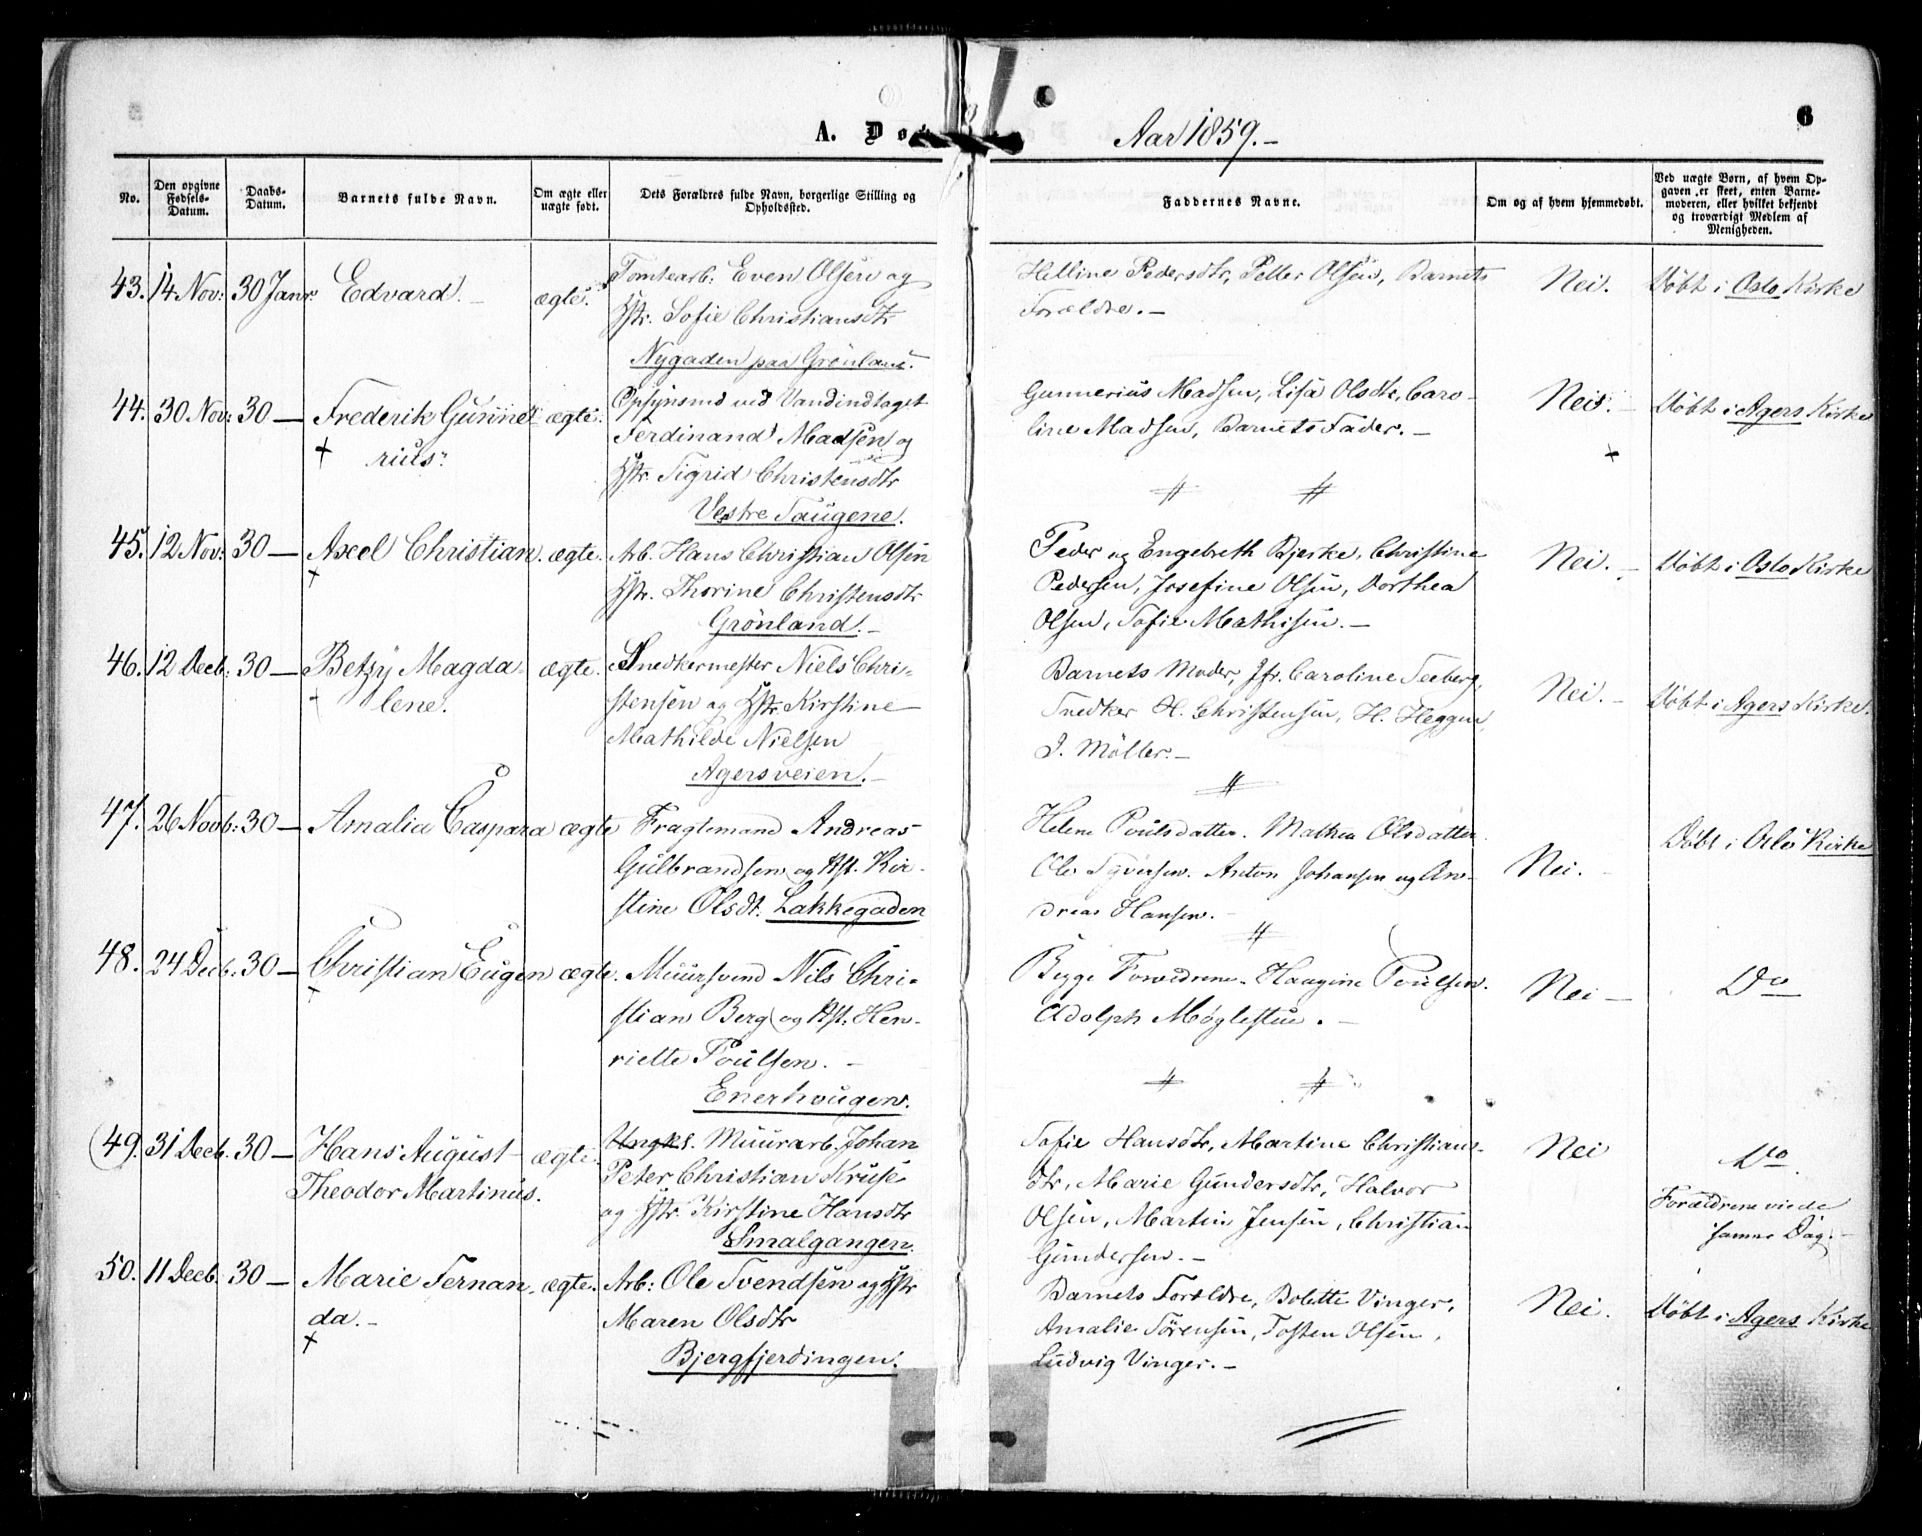 A. Dø
Aar 1859.-
6
No.
Den opgivne Fødsels-Datum.
Daabs-Datum.
Barnets fulde Navn.
Om ægte eller uægte født.
Dets Forældres fulde Navn, borgerlige Stilling og Opholdssted.
Faddernes Navne.
Om og af hvem hjemmedøbt.
Ved uægte Børn, af hvem Opgaven er skeet, enten Barnemoderen, eller hvilket bekjendt og troværdigt Medlem af Menigheden.
43. 14 Nov: 30 Janr. Edvard. - ægte. Tomtearb: Even Olsen og
Hstr. Sofie Christiansdtr
Nygaden paa Grønland.
Helline Pedersdtr, Petter Olsen, Barnets
Forældre. -
Nei. Døbt i Oslo Kirke
44. 30 Nov: 30 — Frederik Gunne- ægte. Opsynsmd ved Vandindtaget
+ rius. Ferdinand Madsen og
Hstr. Sigrid Christensdtr
Vestre Taugene.
Gunnerius Madsen, Lisa Olsdtr, Caro-
line Madsen, Barnets Fader. -
Nei. - Døbt i Agers Kirke
+
45. 12 Nov: 30 — Axel Christian. ægte. Arb. Hans Christian Olsen
+ Hstr. Thorine Christensdtr
Grønland. -
Peder og Engebreth Bjerke, Christine
Pedersen, Josefine Olsen, Dorthea
Olsen, Sofie Mathisen. -
Nei. - Døbt i Oslo Kirke
46. 12 Decb: 30 — Betzy Magda- ægte. Snedkermester Niels Chri-
+ lene. stensen og Hstr. Kirstine
Mathilde Nielsen
Agersveien. -
Barnets Moder, Jfr. Caroline Seeberg,
Snedker H. Christensen, H. Heggen,
J. Møller. -
Nei. - Døbt i Agers Kirke.
47. 26 Novb: 30 — Amalia Caspara ægte Fragtemand Andreas
Gulbrandsen og Hst. Kir-
stine Olsdt. Lakkegaden
Helene Poulsdatter. Mathea Olsdatter
Ole Syversen. Anton Johansen og An-
dreas Hansen. -
Nei. Døbt i Oslo Kirke
48. 24 Decb: 30 — Christian Eugen ægte. Muursvend Nils Chri-
+ stian Berg og Hst: Hen-
riette Poulsen. -
Enerhougen.
Begge Forældrene. Haagine Poulsen.
Adolph Møglestue. -
Nei — Do
49. 31 Decb. 30 — Hans August ægte. Ungk. Muurarb. Johan
Theodor Martinus. Peter Christian Kruse
og Hstr. Kirstine Hansdtr
Smalgangen.
Sofie Hansdtr, Martine Christians-
dtr, Marie Gundersdtr, Halvor
Olsen, Martin Jensen, Christian
Gundersen. -
Nei Do.
Forældrene viede
samme Dag. -
50. 11 Decb. 30 — Marie Fernan- ægte. Arb: Ole Svendsen og Hstr
da. - Maren Olsdtr
+ Bjergfjerdingen.
Barnets Forældre, Bolette Vinger,
Amalie Sørensen, Tosten Olsen,
Ludvig Vinger. -
Nei. Døbt i Agers Kirke